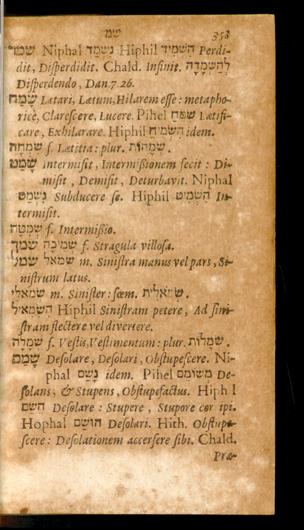 שמ 358
שמד Niphal נשמד Hiphil השמיד Perdi-
dit, Disperdidit. Chald. Infinit. להשמדה
Disperdendo, Dan. 7. 26.
שמח Lætari, Lætum, Hilarem esse: metapho-
ricè, Clarescere, Lucere. Pihel שמח Lætifi-
care, Exhilarare. Hiphil השמיח idem.
שמחה f. Lætitia: plur. שמחות.
שמט Intermisit, Intermissionem fecit: Di-
misit, Demisit, Deturbavit. Niphal
נשמט Subducere se. Hiphil השמיט In-
termisit.
שמטה f. Intermissio.
שמך שמיכה f. Stragula villosa.
שמל שמאל m. Sinistra manus vel pars, Si-
nistrum latus.
שמאלי m. Sinister: fœm. שמאלית.
השמאיל Hiphil Sinistram petere, Ad sini-
stram flectere vel divertere.
שמלה f. Vestis, Vestimentum: plur. שמלות.
שמם Desolare, Desolari, Obstupescere. Ni-
phal נשם idem. Pihel משומם De-
solans, & Stupens, Obstupefactus. Hiph l
השם Desolare: Stupere, Stupore cor ipi.
Hophal הושם Desolari. Hith. Obstupe-
scere: Desolationem accersere sibi. Chald.
Præ-